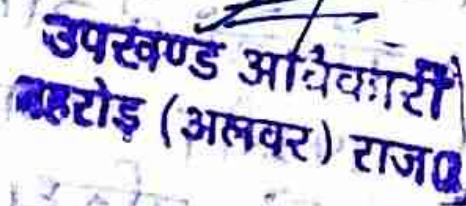 उपखण्ड अधिकारी
बहरोड़ (अलवर) राज०